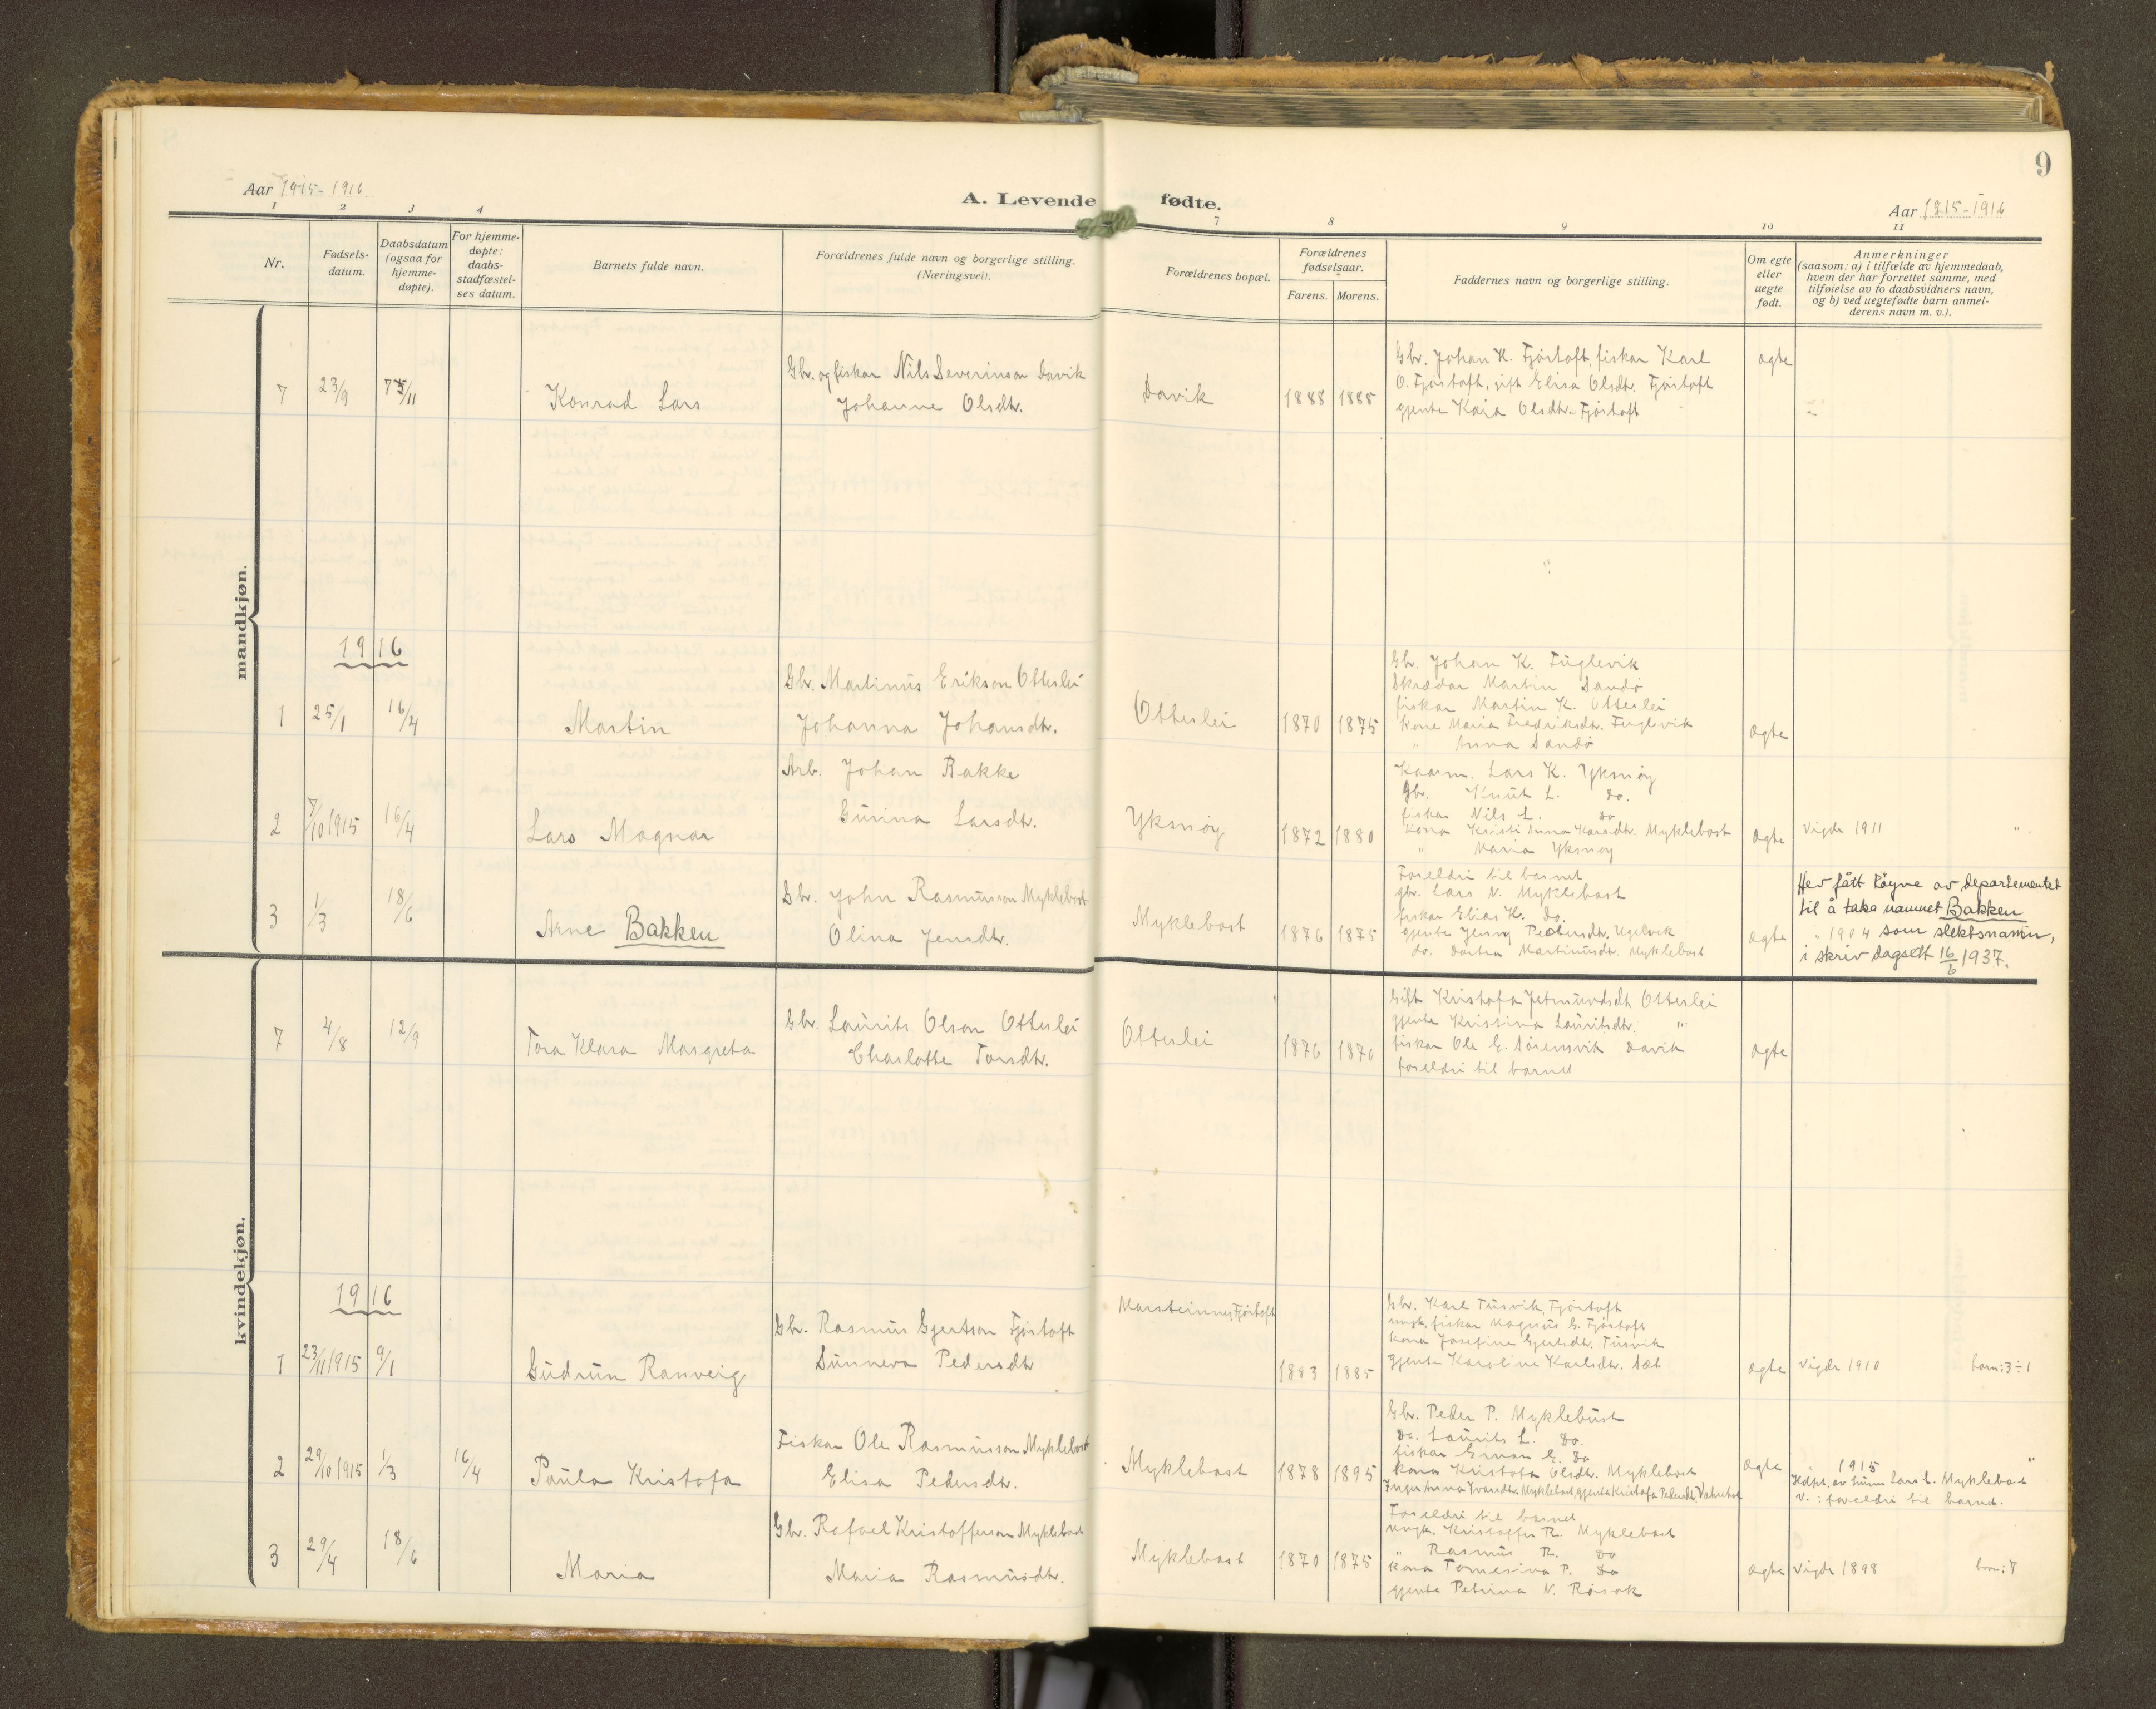 9
Aar 1915-1916
A. Levende fødte.
Aar 1915-1916
1 2 3 4 7 8 9 10 11
Nr.
Fødsels-
datum.
Daabsdatum
(ogsaa for
hjemme-
døpte).
For hjemme-
døpte:
daabs-
stadfæstel-
ses datum.
Barnets fulde navn.
Forældrenes fulde navn og borgerlige stilling.
(Næringsvei).
Forældrenes bopæl.
Forældrenes
fødselsaar.
Farens. Morens.
Faddernes navn og borgerlige stilling.
Om egte
eller
uegte
født.
Anmerkninger
(saasom: a) i tilfælde av hjemmedaab,
hvem der har forrettet samme, med
tilføielse av to daabsvidners navn,
og b) ved uegtefødte barn anmel-
derens navn m. v.).
mandkjøn.
7 23/9 7/11 Konrad Lars
Gbr. og fiskar Nils Severinson Davik
Johanne Olsdtr.
Davik 1888 1888
Gbr. Johan K. Fjørtoft, fiskar Karl
O. Fjørtoft, gift Elisa Olsdtr. Fjørtoft
gjente Kaja Olsdtr. Fjørtoft
ægte
1916
1 25/1 16/4 Martin
Gbr. Martinus Erikson Otterlei
Johanna Johansdtr.
Otterlei 1870 1875
Gbr. Johan K. Fuglevik
Skrædar Martin Sandø
fiskar Martin K. Otterlei
kone Maria Fredriksdtr. Fuglevik
" Anna Sandø
ægte
2 7/10 1915 16/4 Lars Magnar
Arb. Johan Bakke
Gunna Larsdtr.
Yksnøy 1872 1880
Kaarm. Lars K. Yksnøy
Gbr. Knut L. do.
fiskar Nils L. do
Kona Kristi Anna Karsdtr. Myklebost
" Maria Yksnøy
ægte Vigde 1911 "
3 1/3 18/6 Arne Bakken
Gbr. John Rasmusson Myklebost
Olina Jensdtr.
Myklebost 1876 1875
Foreldri til barnet
gbr. Lars N. Myklebost
fiskar Elias K. do.
gjente Jenny Pedersdtr. Ugelvik
do. Dortea Martinusdtr. Myklebost
ægte
Hev fått løyve av departementet
til å taka namnet Bakken
" 1904 som slektsnamn,
i skriv dagsett 16/6 1937.
kvindekjøn.
7 4/8 12/9 Tora Klara Margreta
Gbr. Laurits Olson Otterlei
Charlotte Torsdtr.
Otterlei 1876 1876
Gift Kristofa Jetmundsdt Otterlei
gjente Kristina Lauritsdtr. "
fiskar Ole E. Sørensvik Davik
foreldri til barnet
ægte
1916
1 23/11 1915 9/1 Gudrun Ranveig
Gbr. Rasmus Gjertson Fjørtoft
Sunneva Pedersdtr
Marsteinnes, Fjørtoft 1883 1885
Gbr. Karl Tusvik, Fjørtoft
ungk. fiskar Magnus G. Fjørtoft
kona Josefine Gjertsdtr. Tusvik
gjente Karoline Karlsdtr. Sæt
ægte Vigde 1910 born: 3÷1
2 29/10 1915 1/3 16/4 Paula Kristofa
Fiskar Ole Rasmusson Myklebost
Elisa Pedersdtr.
Myklebost 1878 1895
Gbr. Peder P. Myklebust
do. Laurits L. do.
fiskar Einar E. do
kona Kristofa Olsdtr. Myklebost
Inger Anna Ivarsdtr. Myklebost, gjente Kristofa Pedersdt.
ægte " 1915 "
Hdpt. av Lars L. Myklebost
V.: foreldri til barnet.
3 29/4 18/6 Maria
Gbr. Rafael Kristofferson Myklebost
Maria Rasmusdtr.
Myklebost 1870 1875
Foreldri til barnet
ungk. Kristoffer R. Myklebost
" Rasmus R. do
kona Tomesina P. do
gjente Petrina N. Røsok
ægte Vigde 1898 born: 7